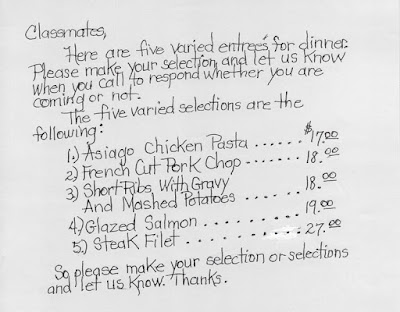 Classmates,
Here are five varied entreés for dinner.
Please make your selection and let us know
when you call to respond whether you are
coming or not.
The five varied selections are the
following:
1.) Asiago Chicken Pasta ...... $17.00
2.) French Cut Pork Chop ..... 18.00
3.) Short Ribs With Gravy
And Mashed Potatoes ...... 18.00
4.) Glazed Salmon ........... 19.00
5.) Steak Filet ............. 27.00
So please make your selection or selections
and let us know. Thanks.